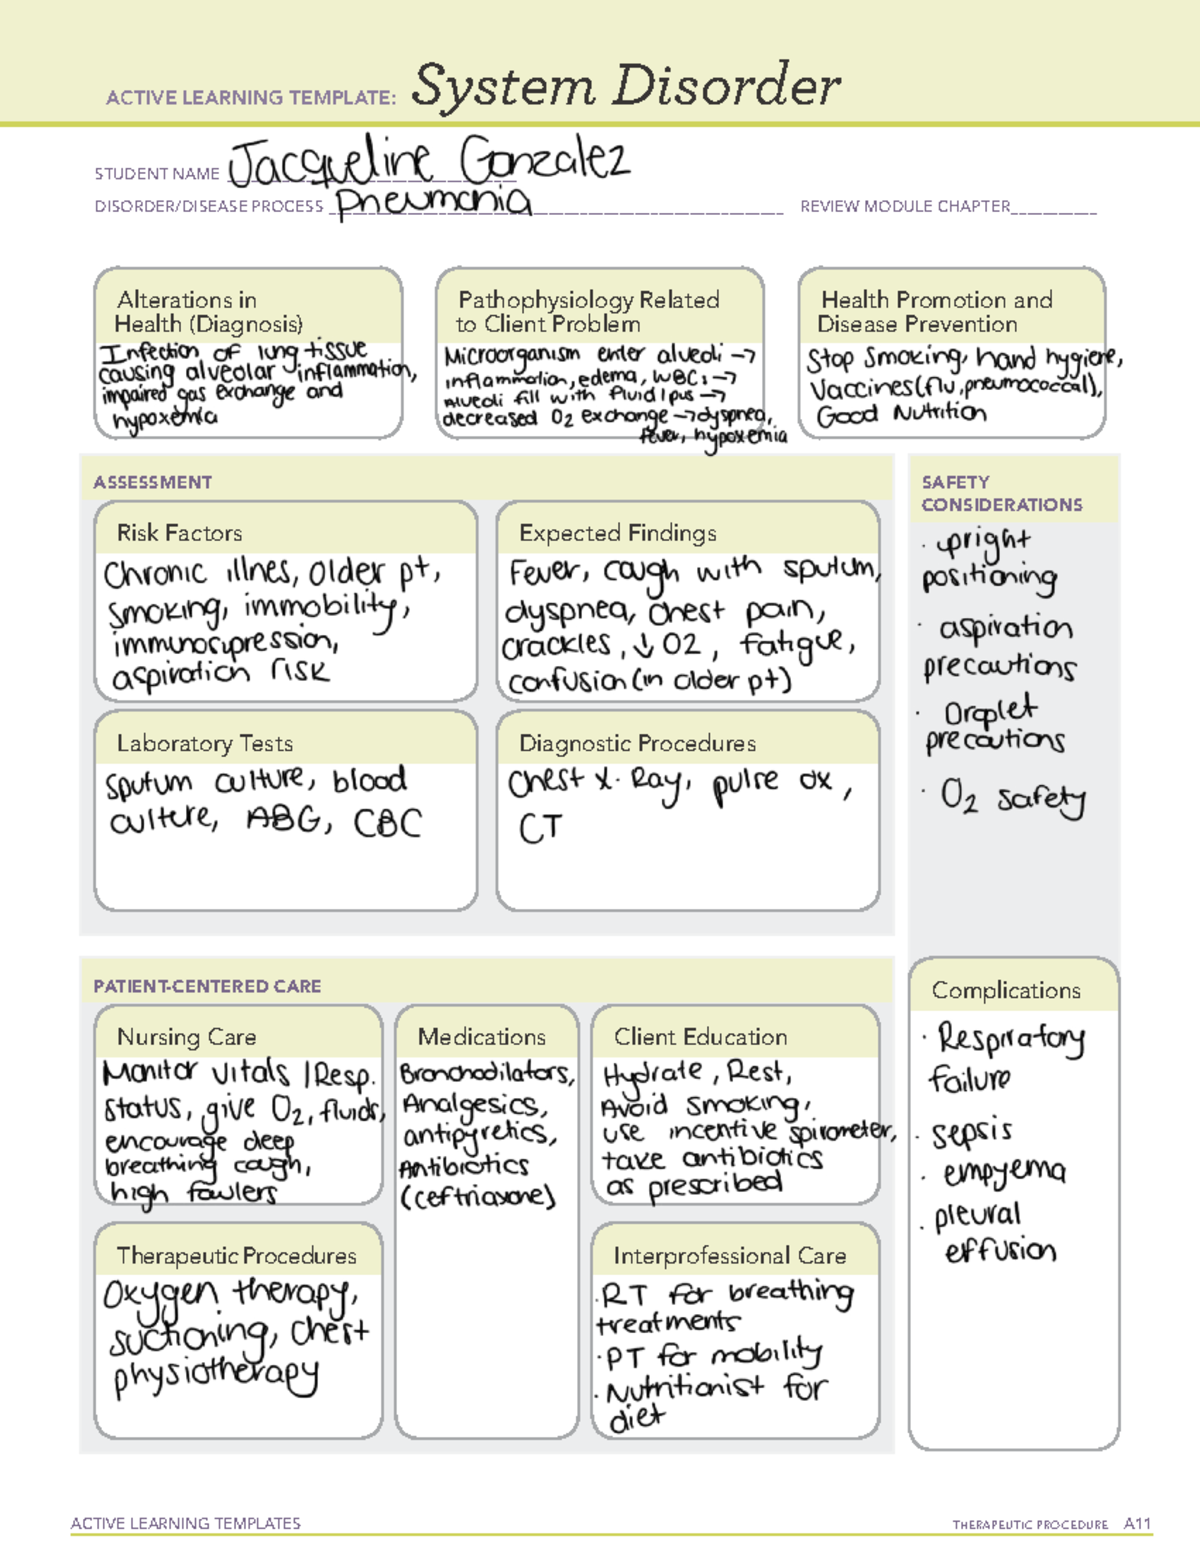 ACTIVE LEARNING TEMPLATE: System Disorder
STUDENT NAME Jacqueline Gonzalez
DISORDER/DISEASE PROCESS Pneumonia REVIEW MODULE CHAPTER
Alterations in
Health (Diagnosis)
Infection of lung tissue
causing alveolar inflammation,
impaired gas exchange and
hypoxemia
Pathophysiology Related
to Client Problem
Microorganism enter alveoli →
inflammation, edema, WBCs →
Alveoli fill with fluid/pus →
decreased O2 exchange → dyspnea,
fever, hypoxemia
Health Promotion and
Disease Prevention
Stop Smoking, hand hygiene,
Vaccines (flu, pneumococcal),
Good Nutrition
ASSESSMENT
Risk Factors
Chronic illnes, Older pt,
smoking, immobility,
immunosupression,
aspiration risk
Expected Findings
Fever, cough with sputum,
dyspnea, chest pain,
crackles, ↓ O2, fatigue,
confusion (in older pt)
Laboratory Tests
Sputum culture, blood
culture, ABG, CBC
Diagnostic Procedures
Chest X-Ray, pulse ox,
CT
SAFETY
CONSIDERATIONS
· upright
positioning
· aspiration
precautions
· Droplet
precautions
· O2 safety
PATIENT-CENTERED CARE
Nursing Care
Monitor vitals / Resp.
status, give O2, fluids,
encourage deep
breathing cough,
high fowlers
Medications
Bronchodilators,
Analgesics,
antipyretics,
Antibiotics
(ceftriaxone)
Client Education
Hydrate, Rest,
Avoid smoking,
use incentive spirometer,
take antibiotics
as prescribed
Therapeutic Procedures
Oxygen therapy,
suctioning, chest
physiotherapy
Interprofessional Care
· RT for breathing
treatments
· PT for mobility
· Nutritionist for
diet
Complications
· Respiratory
failure
· sepsis
· empyema
· pleural
effusion
ACTIVE LEARNING TEMPLATES
THERAPEUTIC PROCEDURE A11